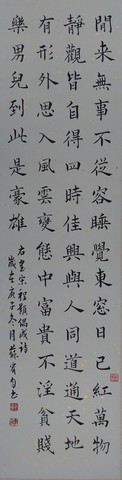 閒來無事不從容睡覺東窗日已紅萬物
靜觀皆自得四時佳興與人同道通天地
有形外思入風雲變態中富貴不淫貧賤
樂男兒到此是豪雄
宋程顥偶成詩
歲在庚子冬月